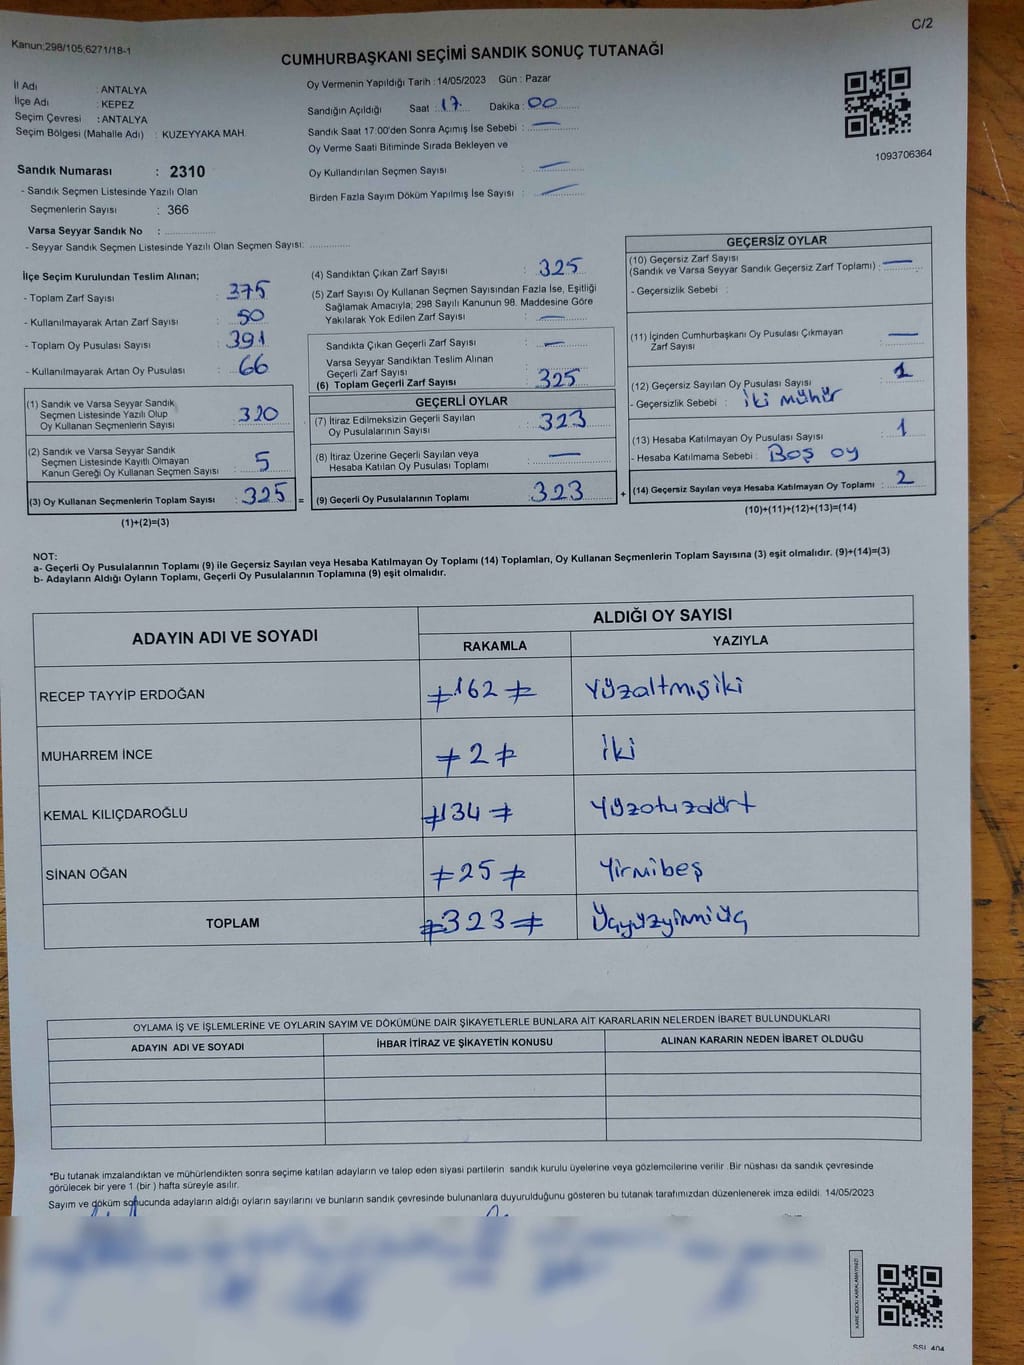 C/2
Kanun;298/105;6271/18-1
CUMHURBAŞKANI SEÇİMİ SANDIK SONUÇ TUTANAĞI
İl Adı : ANTALYA
İlçe Adı : KEPEZ
Seçim Çevresi : ANTALYA
Seçim Bölgesi (Mahalle Adı) : KUZEYYAKA MAH.
Sandık Numarası : 2310
- Sandık Seçmen Listesinde Yazılı Olan
Seçmenlerin Sayısı : 366
Varsa Seyyar Sandık No : ..................
- Seyyar Sandık Seçmen Listesinde Yazılı Olan Seçmen Sayısı: ..............
Oy Vermenin Yapıldığı Tarih : 14/05/2023 Gün : Pazar
Sandığın Açıldığı Saat : 17 Dakika : 00
Sandık Saat 17:00'den Sonra Açımış İse Sebebi : —
Oy Verme Saati Bitiminde Sırada Bekleyen ve
Oy Kullandırılan Seçmen Sayısı : —
Birden Fazla Sayım Döküm Yapılmış İse Sayısı : —
1093706364
İlçe Seçim Kurulundan Teslim Alınan;
- Toplam Zarf Sayısı : 375
- Kullanılmayarak Artan Zarf Sayısı : 50
- Toplam Oy Pusulası Sayısı : 391
- Kullanılmayarak Artan Oy Pusulası : 66
(1) Sandık ve Varsa Seyyar Sandık
Seçmen Listesinde Yazılı Olup
Oy Kullanan Seçmenlerin Sayısı : 320
(2) Sandık ve Varsa Seyyar Sandık
Seçmen Listesinde Kayıtlı Olmayan
Kanun Gereği Oy Kullanan Seçmen Sayısı : 5
(3) Oy Kullanan Seçmenlerin Toplam Sayısı : 325 =
(1)+(2)=(3)
(4) Sandıktan Çıkan Zarf Sayısı : 325
(5) Zarf Sayısı Oy Kullanan Seçmen Sayısından Fazla İse, Eşitliği
Sağlamak Amacıyla; 298 Sayılı Kanunun 98. Maddesine Göre
Yakılarak Yok Edilen Zarf Sayısı : —
Sandıkta Çıkan Geçerli Zarf Sayısı : —
Varsa Seyyar Sandıktan Teslim Alınan
Geçerli Zarf Sayısı :
(6) Toplam Geçerli Zarf Sayısı : 325
GEÇERLİ OYLAR
(7) İtiraz Edilmeksizin Geçerli Sayılan
Oy Pusulalarının Sayısı : 323
(8) İtiraz Üzerine Geçerli Sayılan veya
Hesaba Katılan Oy Pusulası Toplamı : —
(9) Geçerli Oy Pusulalarının Toplamı : 323 +
GEÇERSİZ OYLAR
(10) Geçersiz Zarf Sayısı
(Sandık ve Varsa Seyyar Sandık Geçersiz Zarf Toplamı) : —
- Geçersizlik Sebebi :
(11) İçinden Cumhurbaşkanı Oy Pusulası Çıkmayan
Zarf Sayısı : —
(12) Geçersiz Sayılan Oy Pusulası Sayısı : 1
- Geçersizlik Sebebi : iki mühür
(13) Hesaba Katılmayan Oy Pusulası Sayısı : 1
- Hesaba Katılmama Sebebi : Boş oy
(14) Geçersiz Sayılan veya Hesaba Katılmayan Oy Toplamı : 2
(10)+(11)+(12)+(13)=(14)
NOT:
a- Geçerli Oy Pusulalarının Toplamı (9) ile Geçersiz Sayılan veya Hesaba Katılmayan Oy Toplamı (14) Toplamları, Oy Kullanan Seçmenlerin Toplam Sayısına (3) eşit olmalıdır. (9)+(14)=(3)
b- Adayların Aldığı Oyların Toplamı, Geçerli Oy Pusulalarının Toplamına (9) eşit olmalıdır.
ADAYIN ADI VE SOYADI
ALDIĞI OY SAYISI
RAKAMLA YAZIYLA
RECEP TAYYİP ERDOĞAN ≠162≠ yüzaltmışiki
MUHARREM İNCE ≠2≠ iki
KEMAL KILIÇDAROĞLU ≠134≠ yüzotuzdört
SİNAN OĞAN ≠25≠ Yirmibeş
TOPLAM ≠323≠ Üçyüzyirmiüç
OYLAMA İŞ VE İŞLEMLERİNE VE OYLARIN SAYIM VE DÖKÜMÜNE DAİR ŞİKAYETLERLE BUNLARA AİT KARARLARIN NELERDEN İBARET BULUNDUKLARI
ADAYIN ADI VE SOYADI İHBAR İTİRAZ VE ŞİKAYETİN KONUSU ALINAN KARARIN NEDEN İBARET OLDUĞU
*Bu tutanak imzalandıktan ve mühürlendikten sonra seçime katılan adayların ve talep eden siyasi partilerin sandık kurulu üyelerine veya gözlemcilerine verilir .Bir nüshası da sandık çevresinde
görülecek bir yere 1 (bir ) hafta süreyle asılır.
Sayım ve döküm sonucunda adayların aldığı oyların sayılarını ve bunların sandık çevresinde bulunanlara duyurulduğunu gösteren bu tutanak tarafımızdan düzenlenerek imza edildi. 14/05/2023
KARE KODU KARALAMAYINIZ!